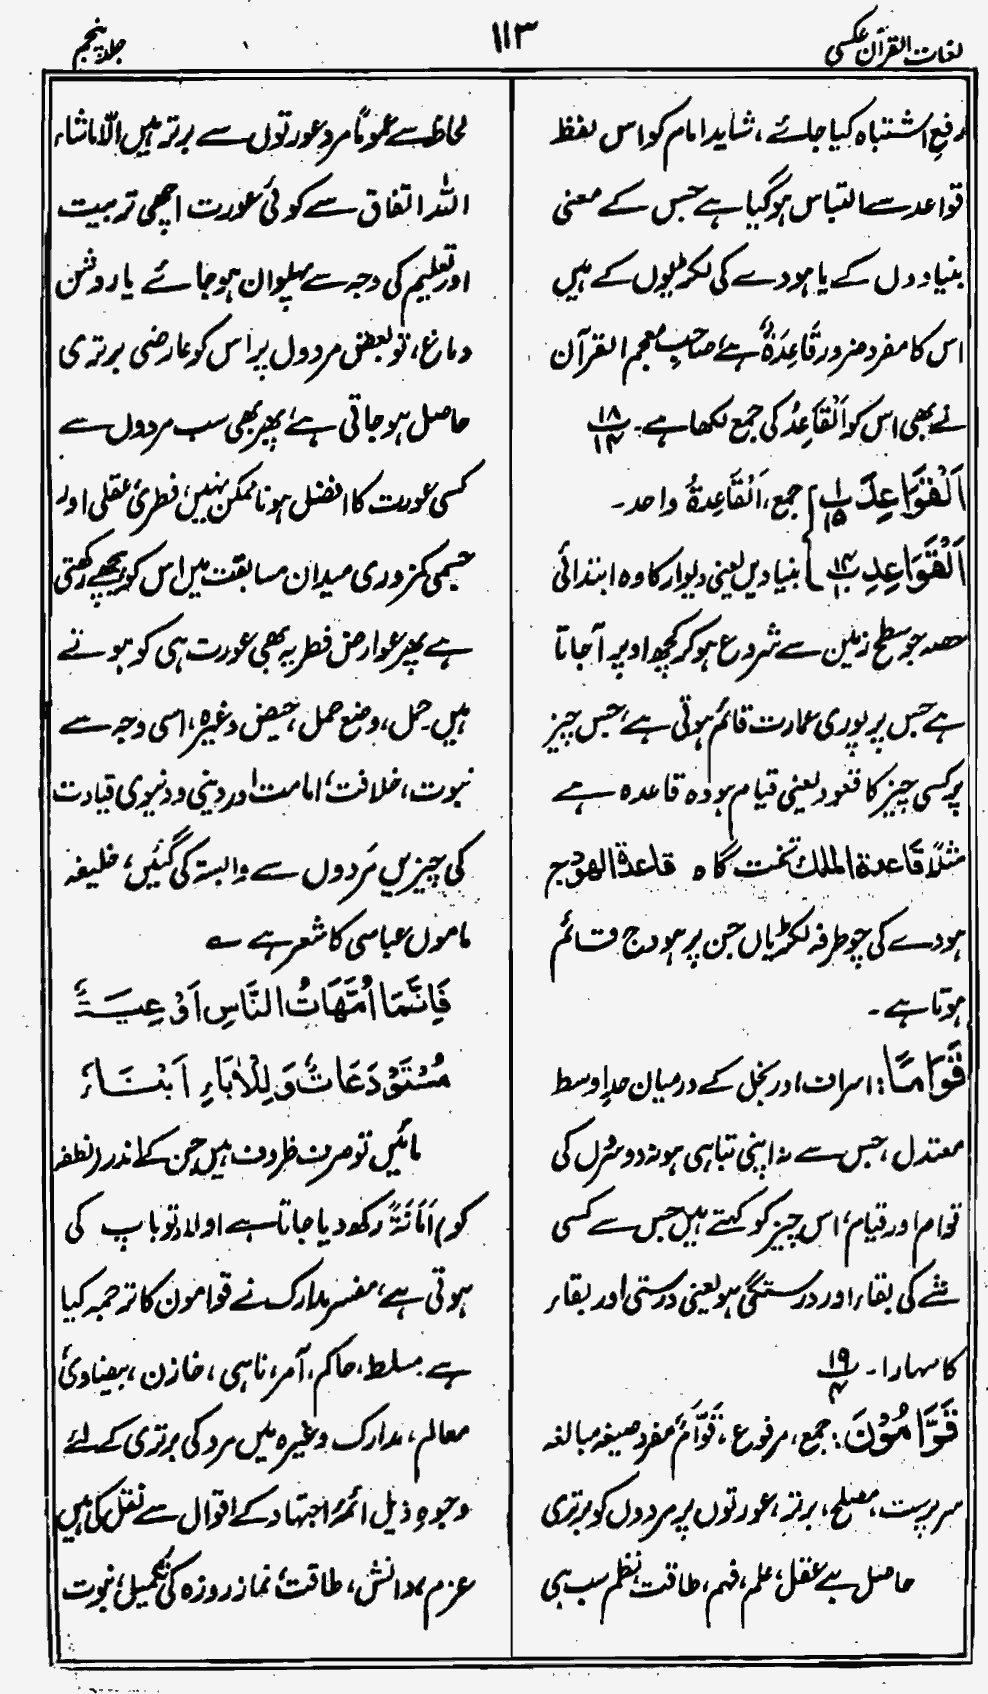 لغات القرآن عکسی
۱۱۳
جلد پنجم
رفع اشتباہ کیا جائے، شاید امام کو اس لفظ
قواعد سے التباس ہوگیا ہے جس کے معنی
بنیادوں کے یا ہودے کی لکڑیوں کے ہیں
اس کا مفرد ضرور قَاعِدَۃٌ ہے، صاحب معجم القرآن
نے بھی اس کو اَلْقَاعِدُ کی جمع لکھا ہے۔ ۱۸/۱۴
اَلْقَوَاعِدَ ۱/۱۵ جمع، اَلْقَاعِدَۃُ واحد۔
اَلْقَوَاعِدِ ۱۴/۱ بنیادیں یعنی دیوار کا وہ ابتدائی
حصہ جو سطح زمین سے شروع ہوکر کچھ اوپر آجاتا
ہے جس پر پوری عمارت قائم ہوتی ہے، جس چیز
پر کسی چیز کا قعود یعنی قیام ہو وہ قاعدہ ہے
مثلًا قاعدۃ الملک تخت گاہ قاعدۃ الھودج
ہودے کی چوطرفہ لکڑیاں جن پر ہودج قائم
ہوتا ہے۔
قَوَامًا: اسراف اور بخل کے درمیان حدِ اوسط
معتدل، جس سے نہ اپنی تباہی ہو نہ دوسروں کی
قوام اور قیام، اس چیز کو کہتے ہیں جس سے کسی
شے کی بقاء اور درستگی ہو یعنی درستی اور بقاء
کا سہارا۔ ۱۹/۴
قَوَّامُوْنَ: جمع، مرفوع، قَوَّامٌ مفرد صیغہ مبالغہ
سرپرست، مصلح، برتر، عورتوں پر مردوں کو برتری
حاصل ہے عقل، علم، فہم، طاقت، نظم سب ہی
لحاظ سے عمومًا مرد عورتوں سے برتر ہیں اِلّا ماشاء
اللہ اتفاق سے کوئی عورت اچھی تربیت
اور تعلیم کی وجہ سے پہلوان ہوجائے یا روشن
دماغ، تو بعض مردوں پر اس کو عارضی برتری
حاصل ہوجاتی ہے، پھر بھی سب مردوں سے
کسی عورت کا افضل ہونا ممکن نہیں، فطری عقلی اور
جسمی کمزوری میدان مسابقت میں اس کو پیچھے رکھتی
ہے پھر عوارض فطریہ بھی عورت ہی کو ہوتے
ہیں حمل، وضع حمل، حیض وغیرہ، اسی وجہ سے
نبوت، خلافت، امامت اور دینی و دنیوی قیادت
کی چیزیں مَردوں سے وابستہ کی گئیں، خلیفہ
ماموں عباسی کا شعر ہے ؎
فَاِنَّمَا اُمَّھَاتُ النَّاسِ اَوْعِیَۃٌ
مُسْتَوْدَعَاتٌ وَلِلْاٰبَاءِ اَبْنَاءُ
مائیں تو صرف ظروف ہیں جن کے اندر (نطفہ
کو) اَمَانَۃً رکھ دیا جاتا ہے اولاد تو باپ کی
ہوتی ہے، مفسر مدارک نے قوامون کا ترجمہ کیا
ہے مسلط، حاکم، آمر، ناہی، خازن، بیضاوی
معالم، مدارک وغیرہ میں مرد کی برتری کے لئے
وجوہِ ذیل ائمۂ اجتہاد کے اقوال سے نقل کی ہیں
عزم، دانش، طاقت، نماز روزہ کی تکمیل، نبوت